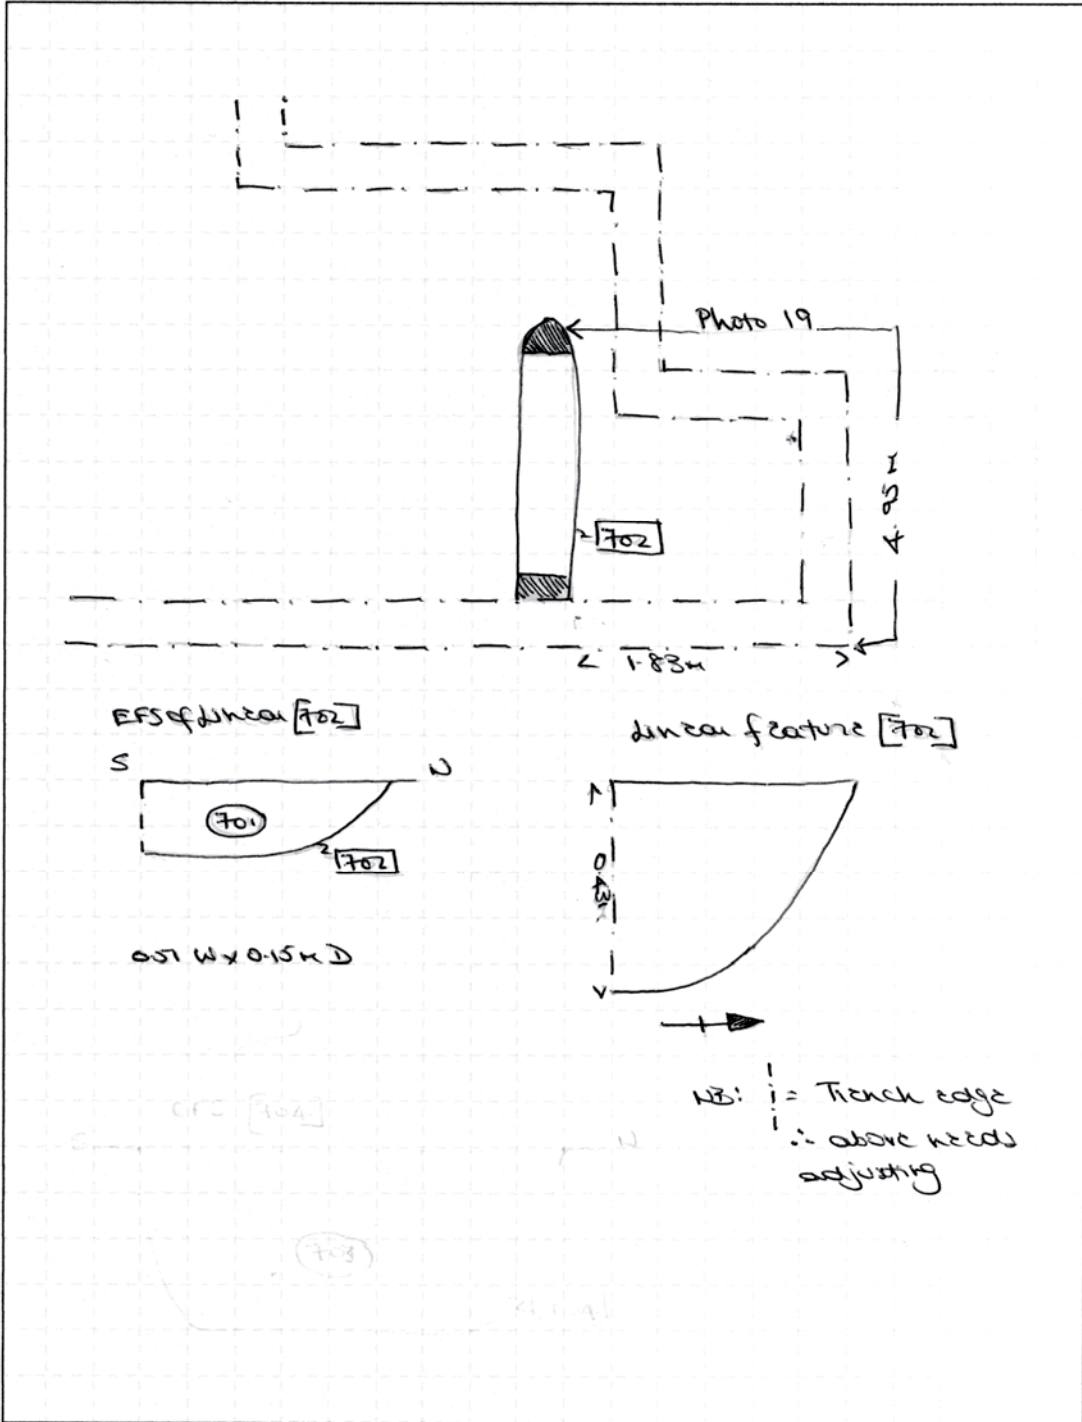 Photo 19
4.95M
[702]
< 1.83m >
EFS of Linear [702]
S N
701
702
0.51 W x 0.15M D
Linear feature [702]
NB: = Trench edge
∴ above needs
adjusting
[704]
S N
703